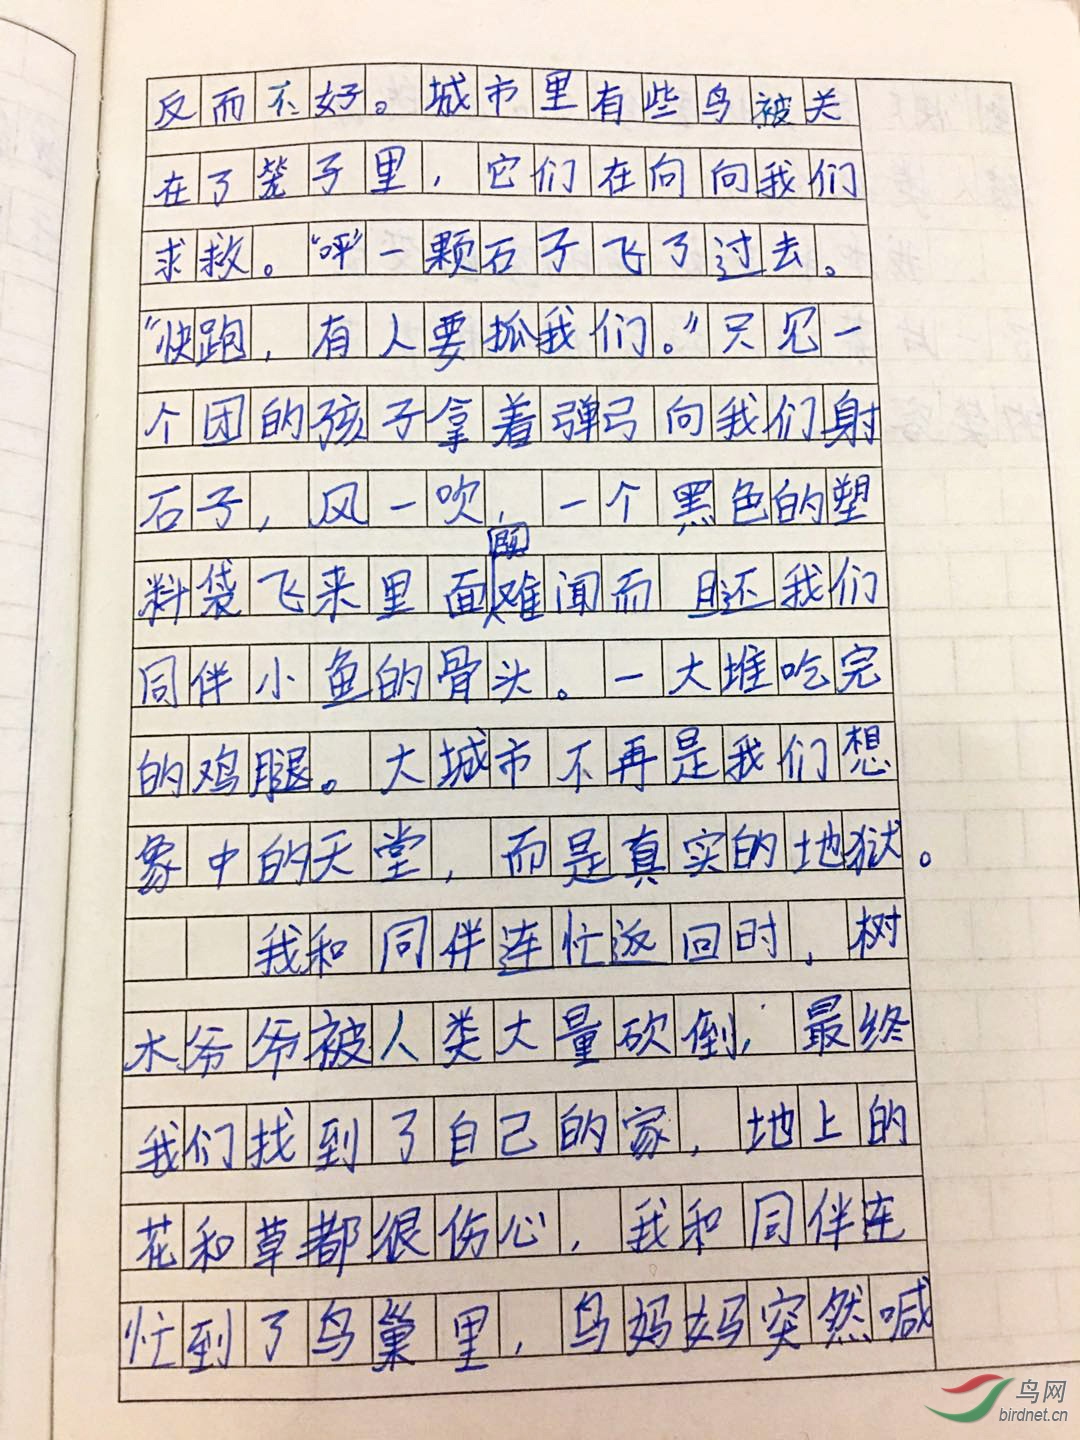 反而不好。城市里有些鸟被关
在了笼子里，它们在向向我们
求救。“呼”一颗石子飞了过去。
“快跑，有人要抓我们。”只见一
个团的孩子拿着弹弓向我们射
石子，风一吹，一个黑色的塑
料袋飞来里面既难闻而且还我们
同伴小鱼的骨头。一大堆吃完
的鸡腿。大城市不再是我们想
象中的天堂，而是真实的地狱。
我和同伴连忙返回时，树
木爷爷被人类大量砍倒，最终
我们找到了自己的家，地上的
花和草都很伤心，我和同伴连
忙到了鸟巢里，鸟妈妈突然喊
鸟网
birdnet.cn